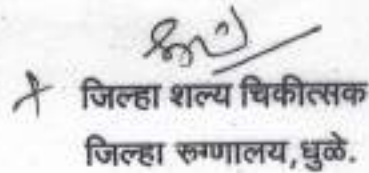 जिल्हा शल्य चिकीत्सक
जिल्हा रुग्णालय,धुळे.